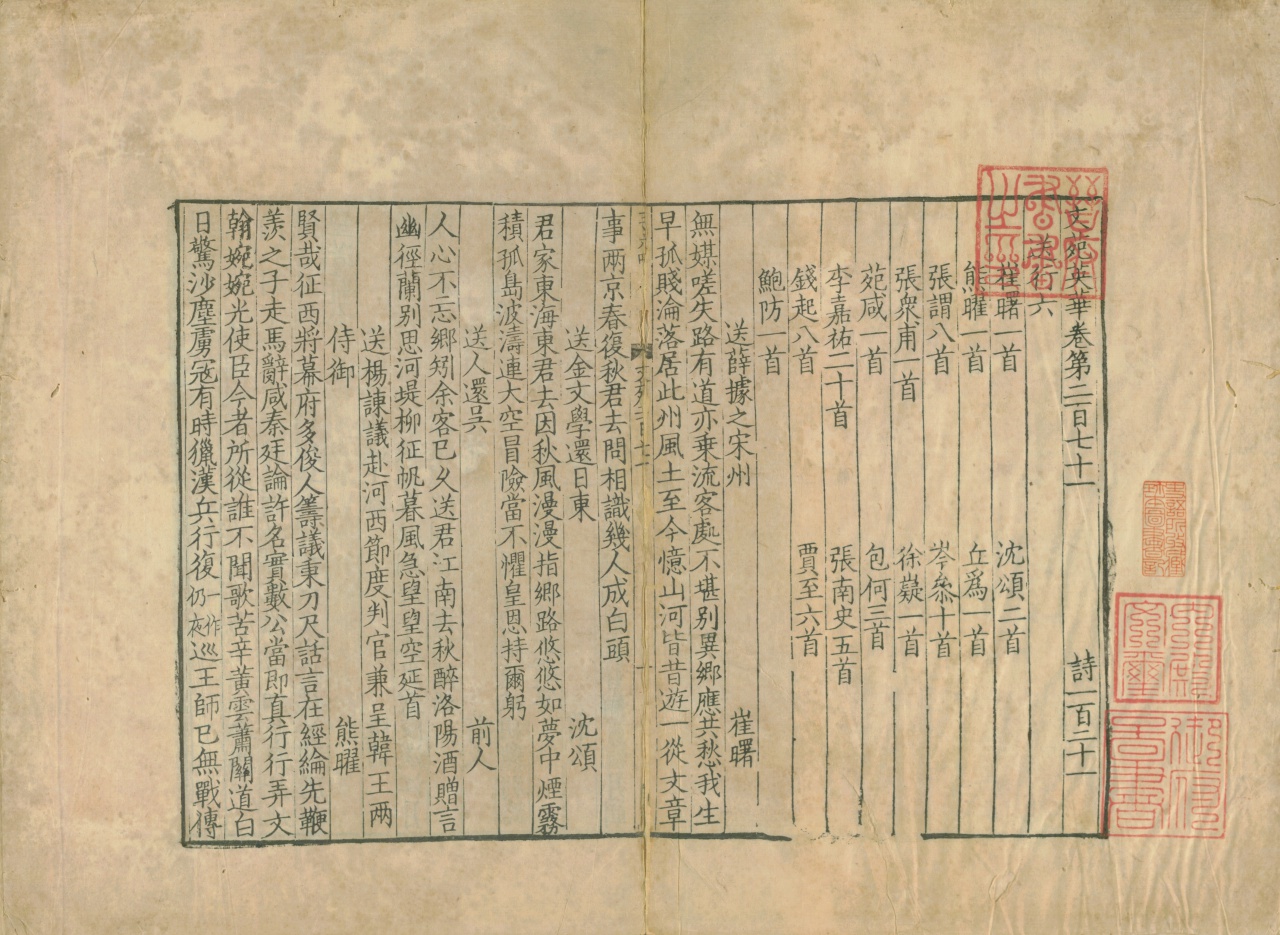 文苑英華卷第二百七十一 詩一百二十一
送行六
崔曙一首 沈頌二首
熊曜一首 丘為一首
張謂八首 岑參十首
張衆甫一首 徐嶷一首
苑咸一首 包何三首
李嘉祐二十首 張南史五首
錢起八首 賈至六首
鮑防一首
送薛據之宋州 崔曙
無媒嗟失路有道亦乗流客處不堪别異鄉應共愁我生
早孤賤淪落居此州風土至今憶山河皆昔遊一從文章
事两京春復秋君去問相識幾人成白頭
送金文學還日東 沈頌
君家東海東君去因秋風漫漫指鄉路悠悠如夢中煙霧
積孤島波濤連大空冒險當不懼皇恩持爾躬
送人還吳 前人
人心不忘鄉矧余客已久送君江南去秋醉洛陽酒贈言
幽徑蘭别思河堤柳征帆暮風急望望空延首
送楊諫議赴河西節度判官兼呈韓王两
侍御 熊曜
賢哉征西將幕府多俊人籌議秉刀尺話言在經綸先鞭
羨之子走馬辭咸秦廷論許名實數公當即真行行弄文
翰婉婉光使臣今者所從誰不聞歌苦辛黄雲蕭關道白
日驚沙塵虜宼有時獵漢兵行復一作仍夜巡王師已無戰傳